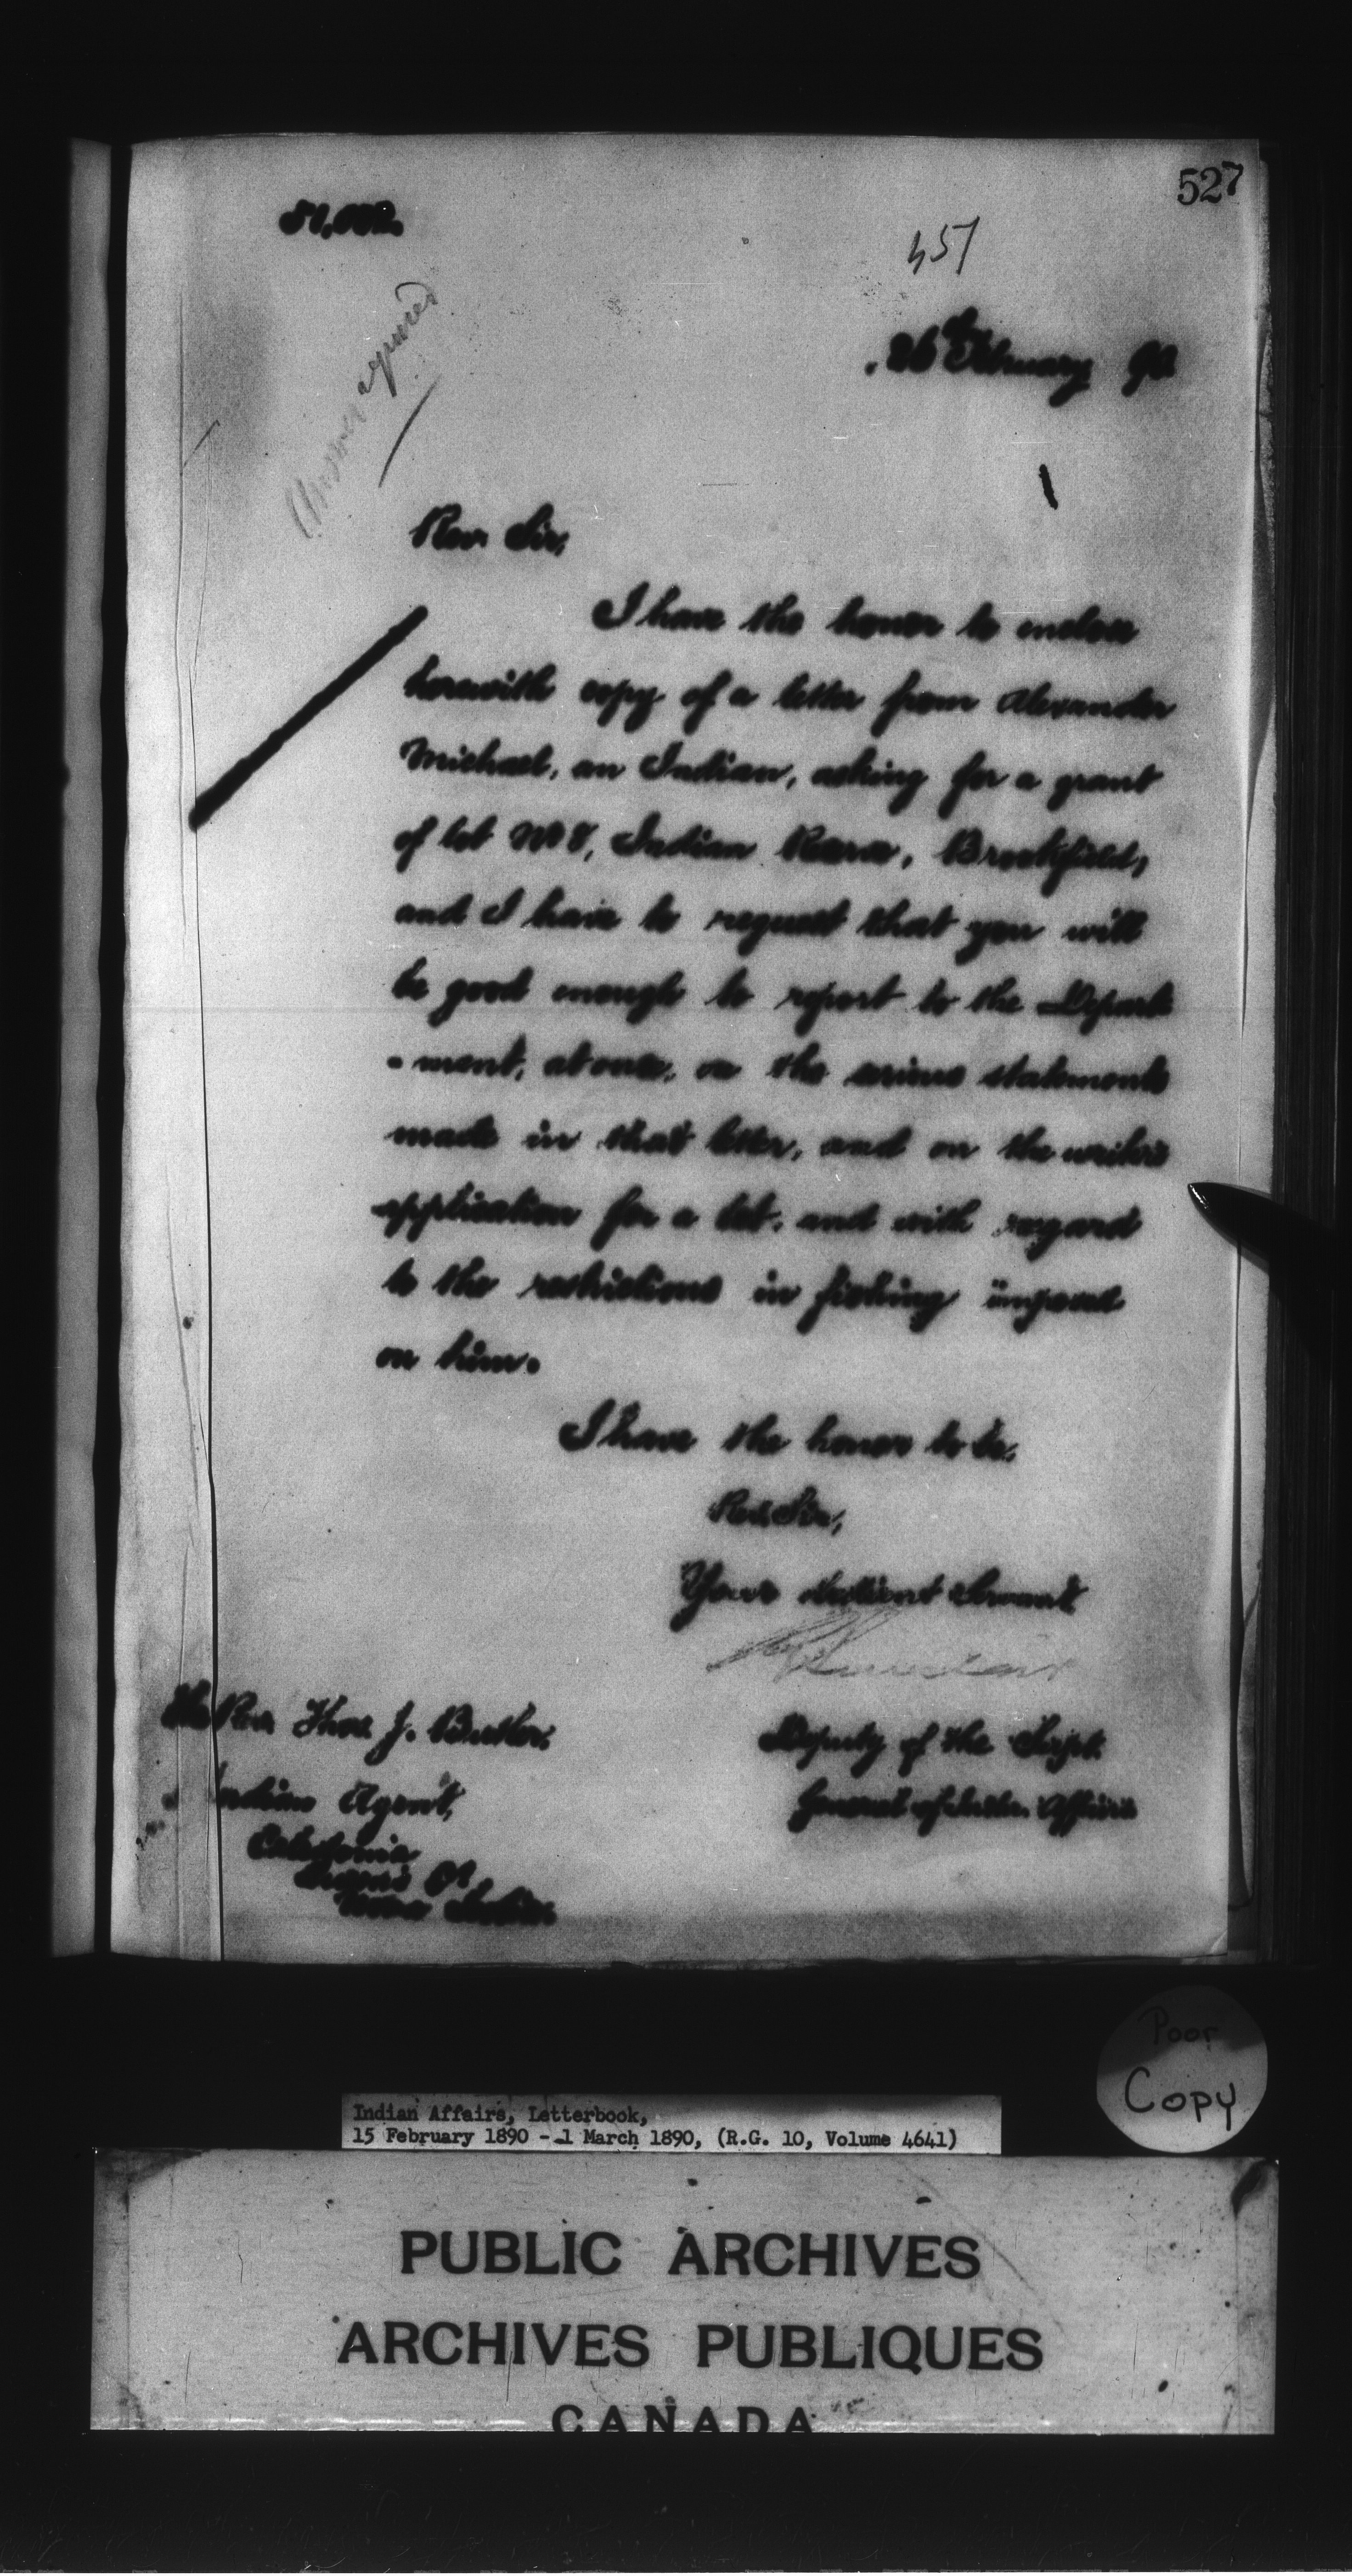 527
51,002.
451
26 February 90
Answer required
Rev. Sir,
I have the honor to enclose
herewith copy of a letter from Alexander
Michael, an Indian, asking for a grant
of lot No 7, Indian Reserve, Brookfield,
and I have to request that you will
be good enough to report to the Depart-
-ment, at once, on the various statements
made in that letter, and on the writer's
application for a lot, and with regard
to the restrictions in fishing imposed
on him.
I have the honor to be,
Rev. Sir,
Your obedient Servant
Deputy of the Supt.
General of Indian Affairs
The Rev. Thos J. Butler,
Indian Agent,
Caledonia
Queens Co.,
Nova Scotia.
Poor
Copy
Indian Affairs, Letterbook,
15 February 1890 - 1 March 1890, (R.G. 10, Volume 4641)
PUBLIC ARCHIVES
ARCHIVES PUBLIQUES
CANADA